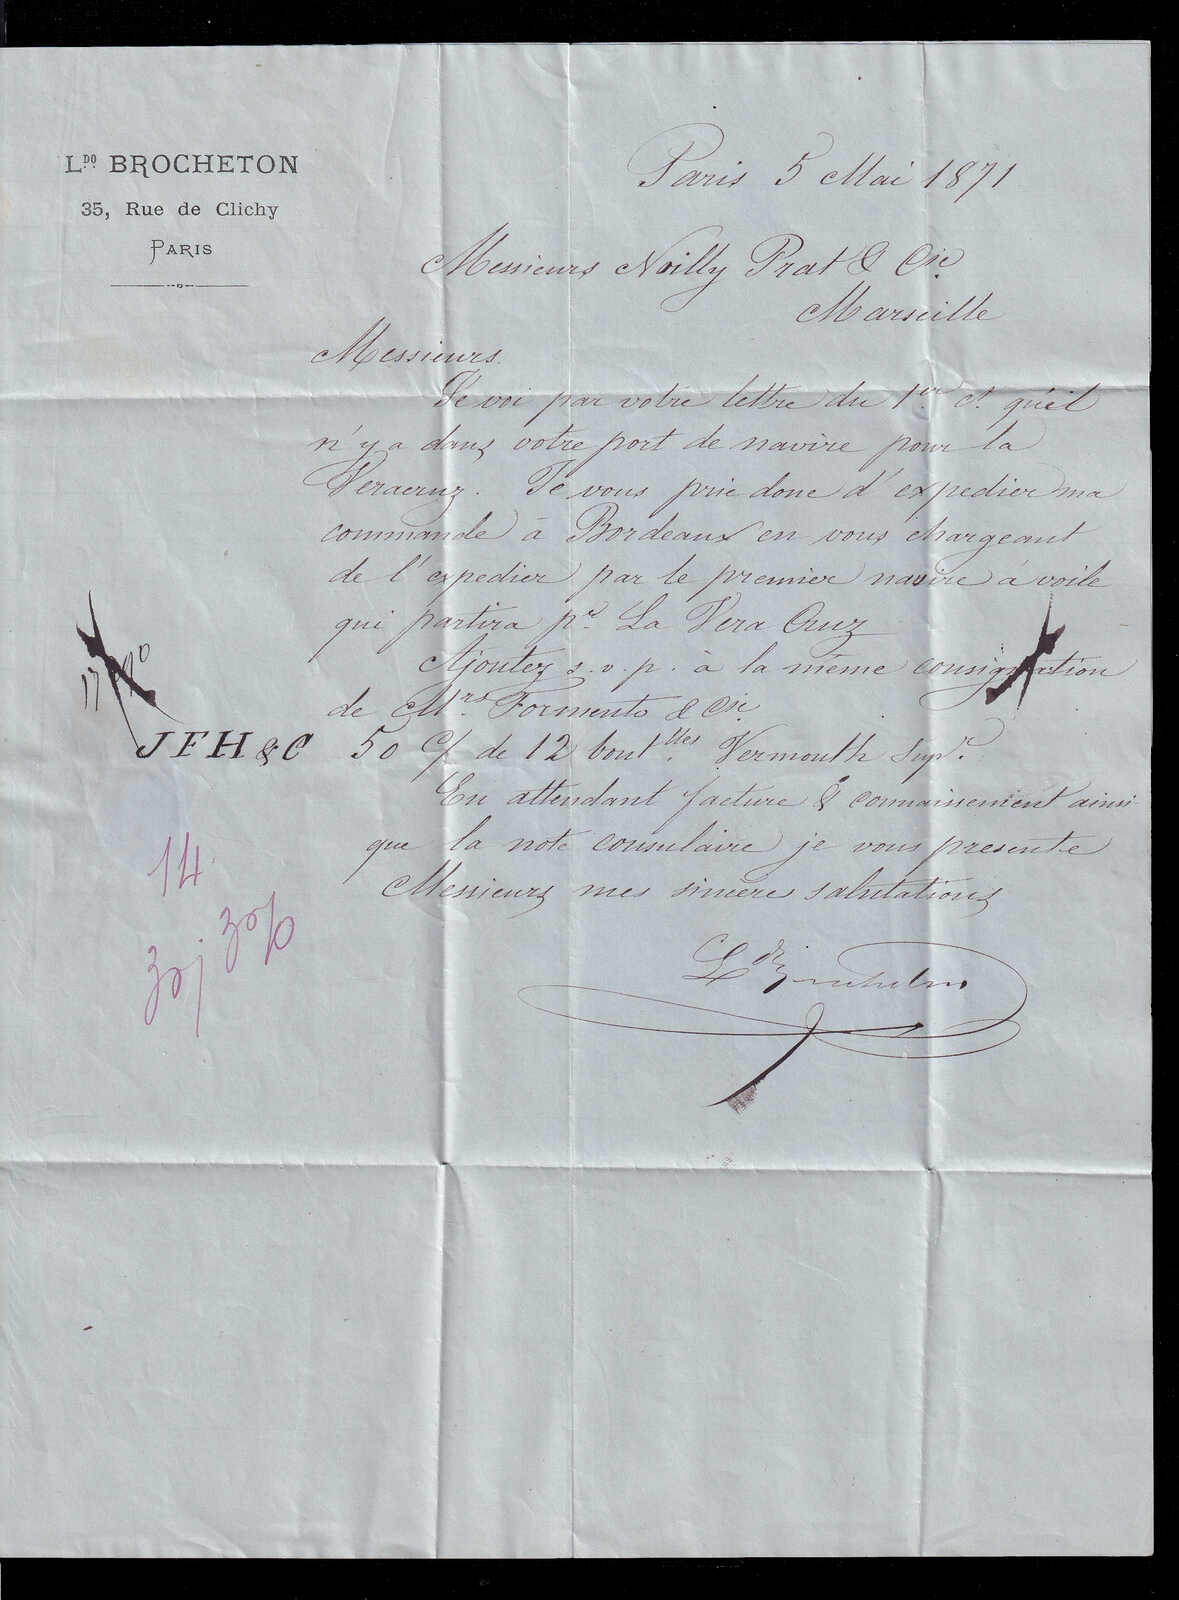 LDO BROCHETON
35, Rue de Clichy
PARIS
Paris 5 Mai 1871
Messieurs Noilly Prat & Cie
Marseille
Messieurs.
Je voi par votre lettre du 1er ct. qu'il
n'y a dans votre port de navire pour la
Veracruz. Je vous prie donc d'expedier ma
commande à Bordeaux en vous chargeant
de l'expedier par le premier navire à voile
qui partira pr. La Vera Cruz
Ajoutez s.v.p. à la même consignation
de Mrs Formento & Cie
JFH&C 50 C/ de 12 boutlles Vermouth Supr.
En attendant facture & connaissement ainsi
que la note consulaire je vous presente
Messieurs mes sincere salutations
14